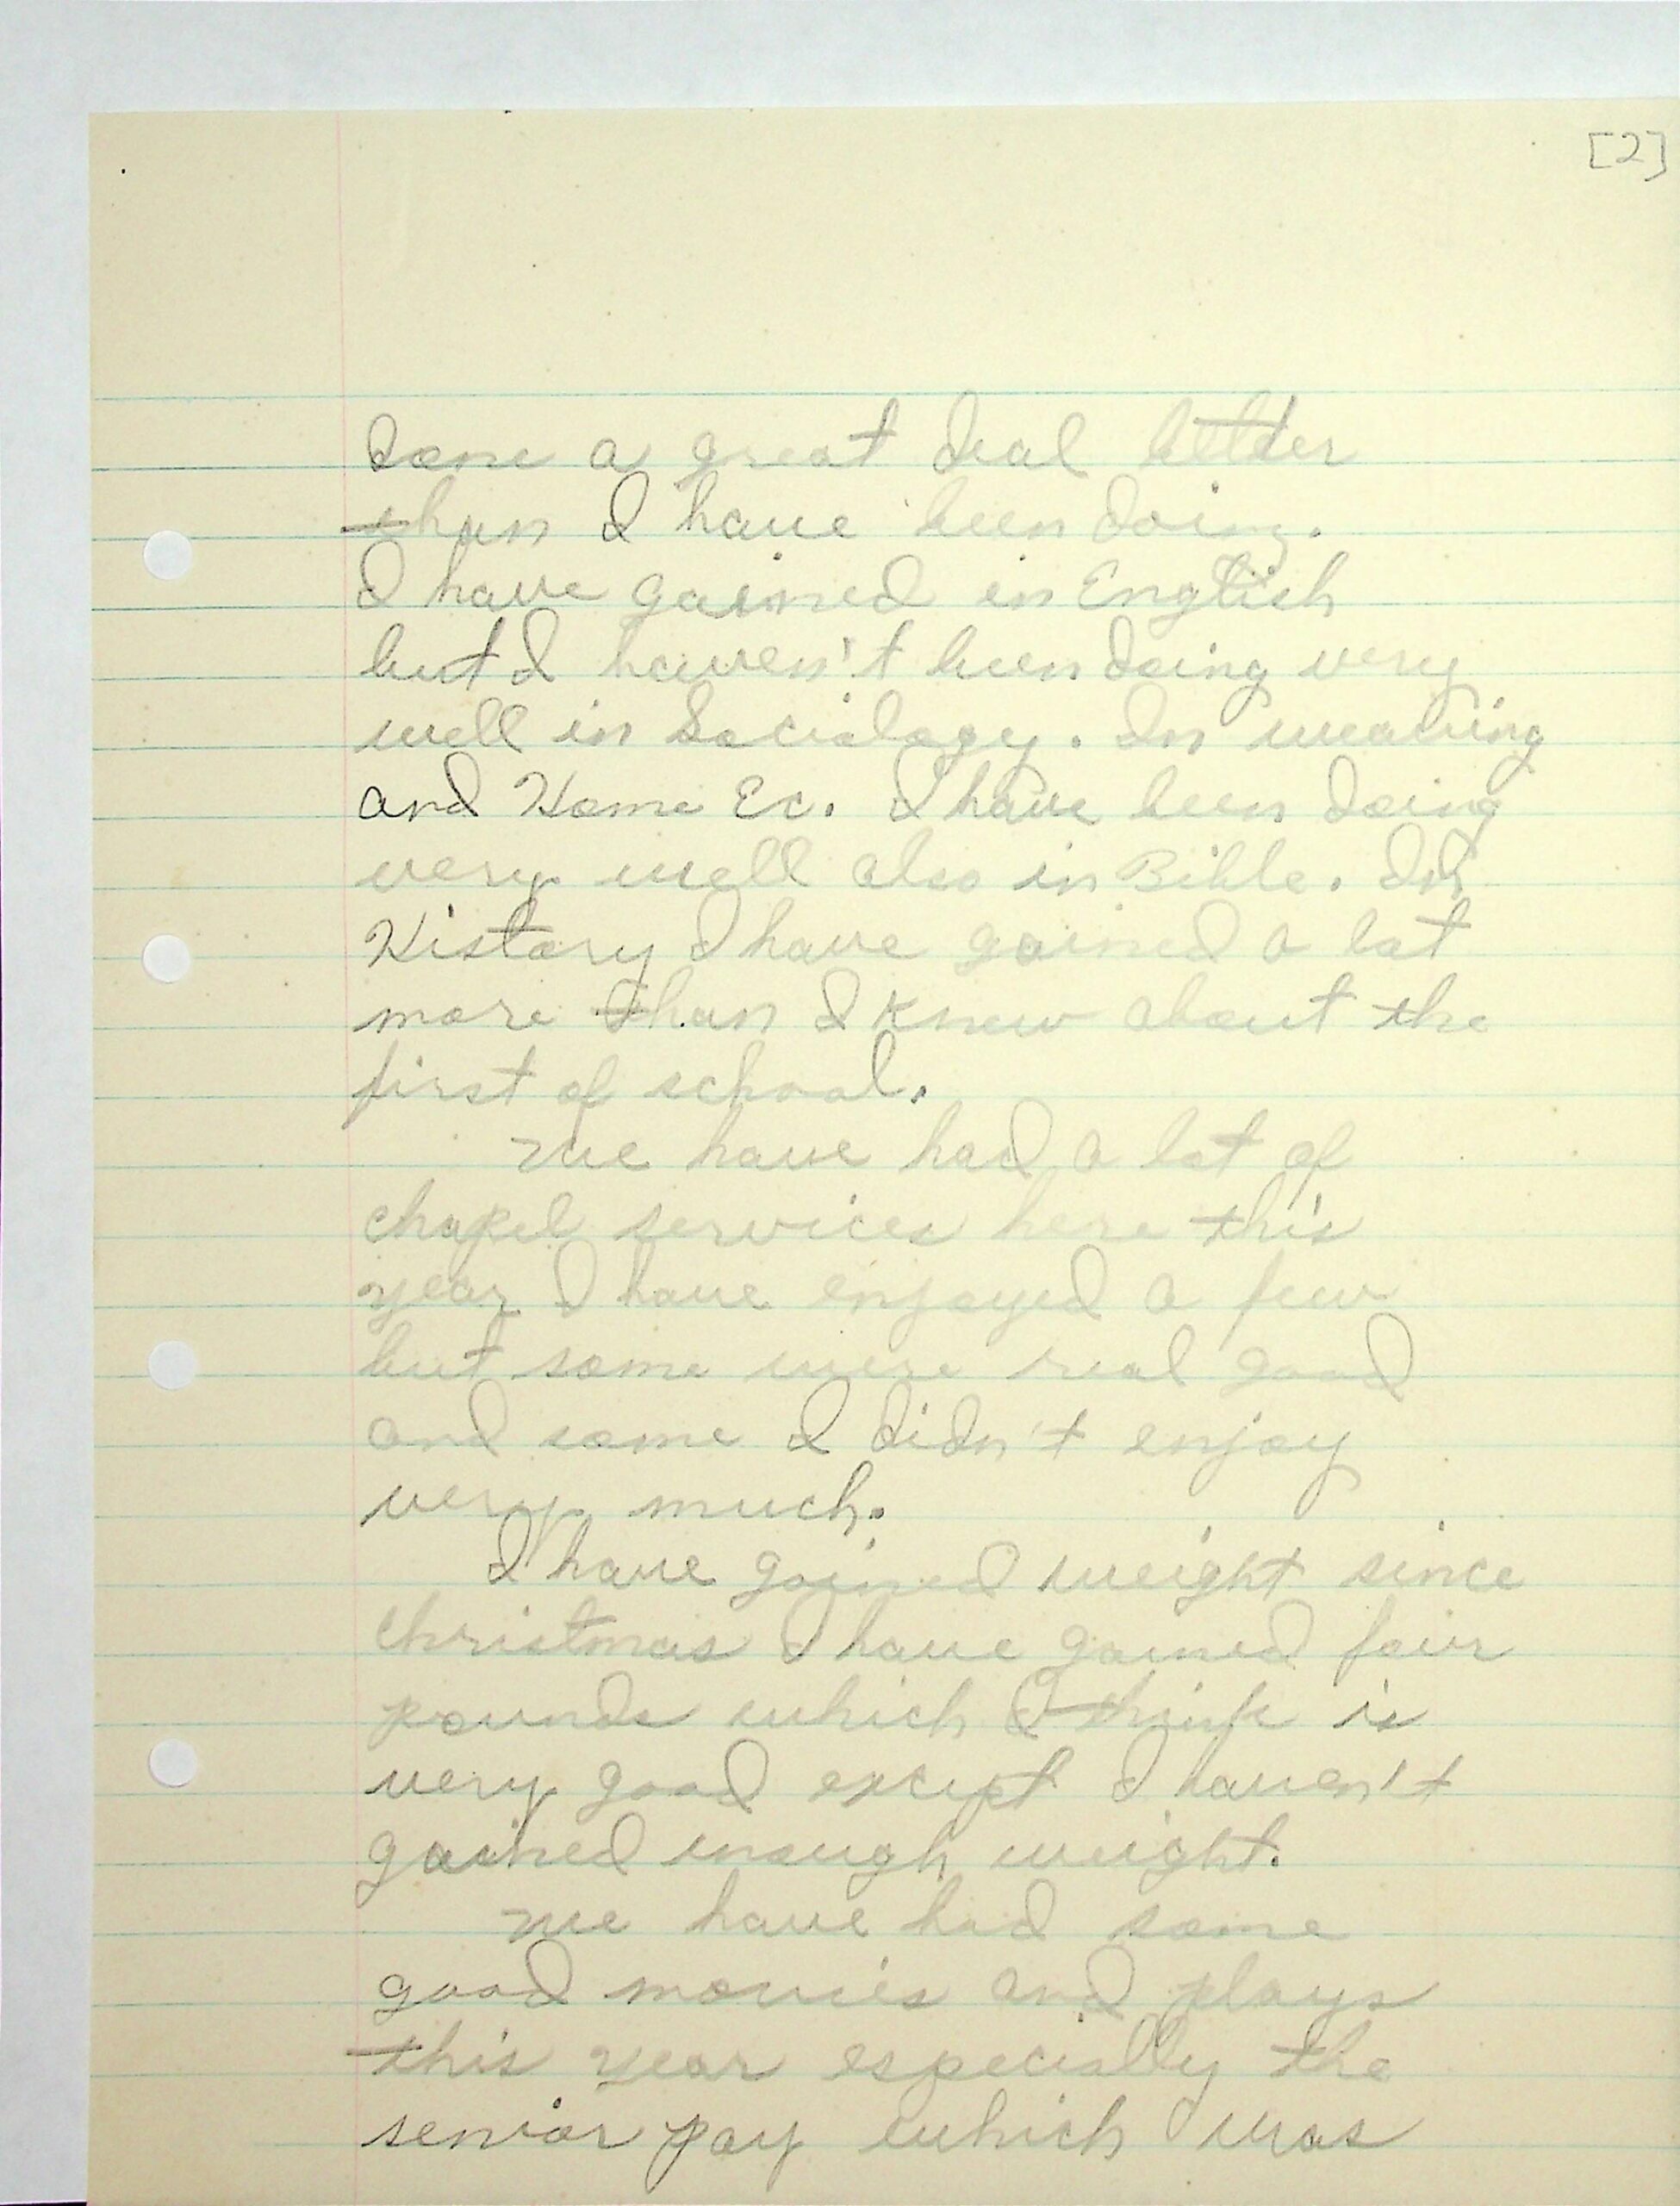 [2]
done a great deal better
than I have been doing.
I have gained in English
but I haven't been doing very
well in Sociology. In weaving
and Home Ec. I have been doing
very well also in Bible. In
History I have gained a lot
more than I knew about the
first of school.
We have had a lot of
chapel services here this
year I have enjoyed a few
but some were real good
and some I didn't enjoy
very much.
I have gained weight since
christmas I have gained four
pounds which I think is
very good except I haven't
gained enough weight.
We have had some
good movies and plays
this year especially the
senior pay which was